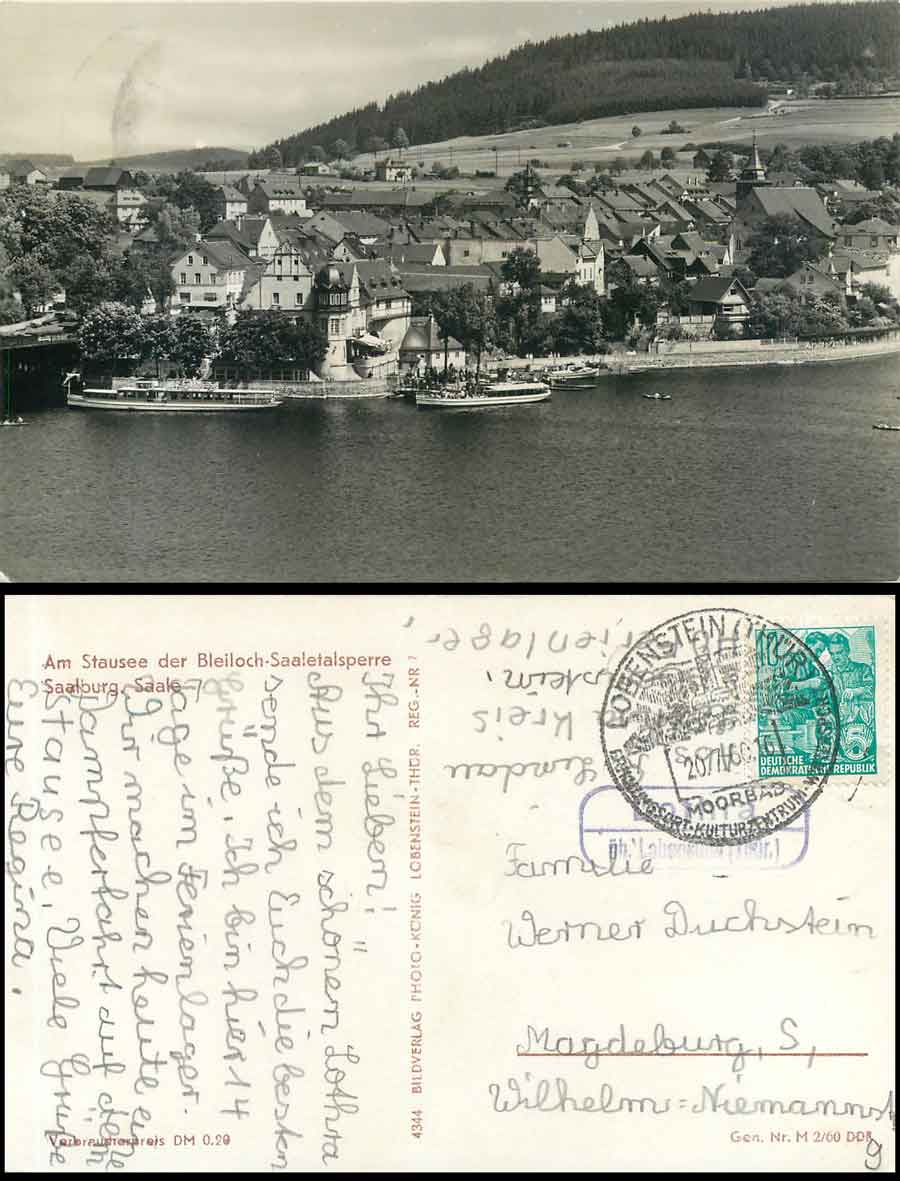 Am Stausee der Bleiloch-Saaletalsperre
Saalburg, Saale 7
Ihr Lieben!
Aus dem schönem Lothra
sende ich Euch die besten
Grüße. Ich bin hier 14
Tage im Ferienlager.
Wir machen heute eine
Dampferfahrt auf dem
Stausee. Viele Grüße
Eure Regina.
Verbraucherpreis DM 0.20
4344 BILDVERLAG PHOTO-KÖNIG LOBENSTEIN-THÜR. REG.-NR 7
Ferienlager,
Kreis
LOBENSTEIN (THÜR)
MOORBAD
ERHOLUNGSORT-KULTURZENTRUM
üb. Lobenstein (Thür.)
5
DEUTSCHE
DEMOKRATISCHE REPUBLIK
Familie
Werner Duchstein
Magdeburg, S,
Wilhelm=Niemannst
9
Gen. Nr. M 2/60 DDR